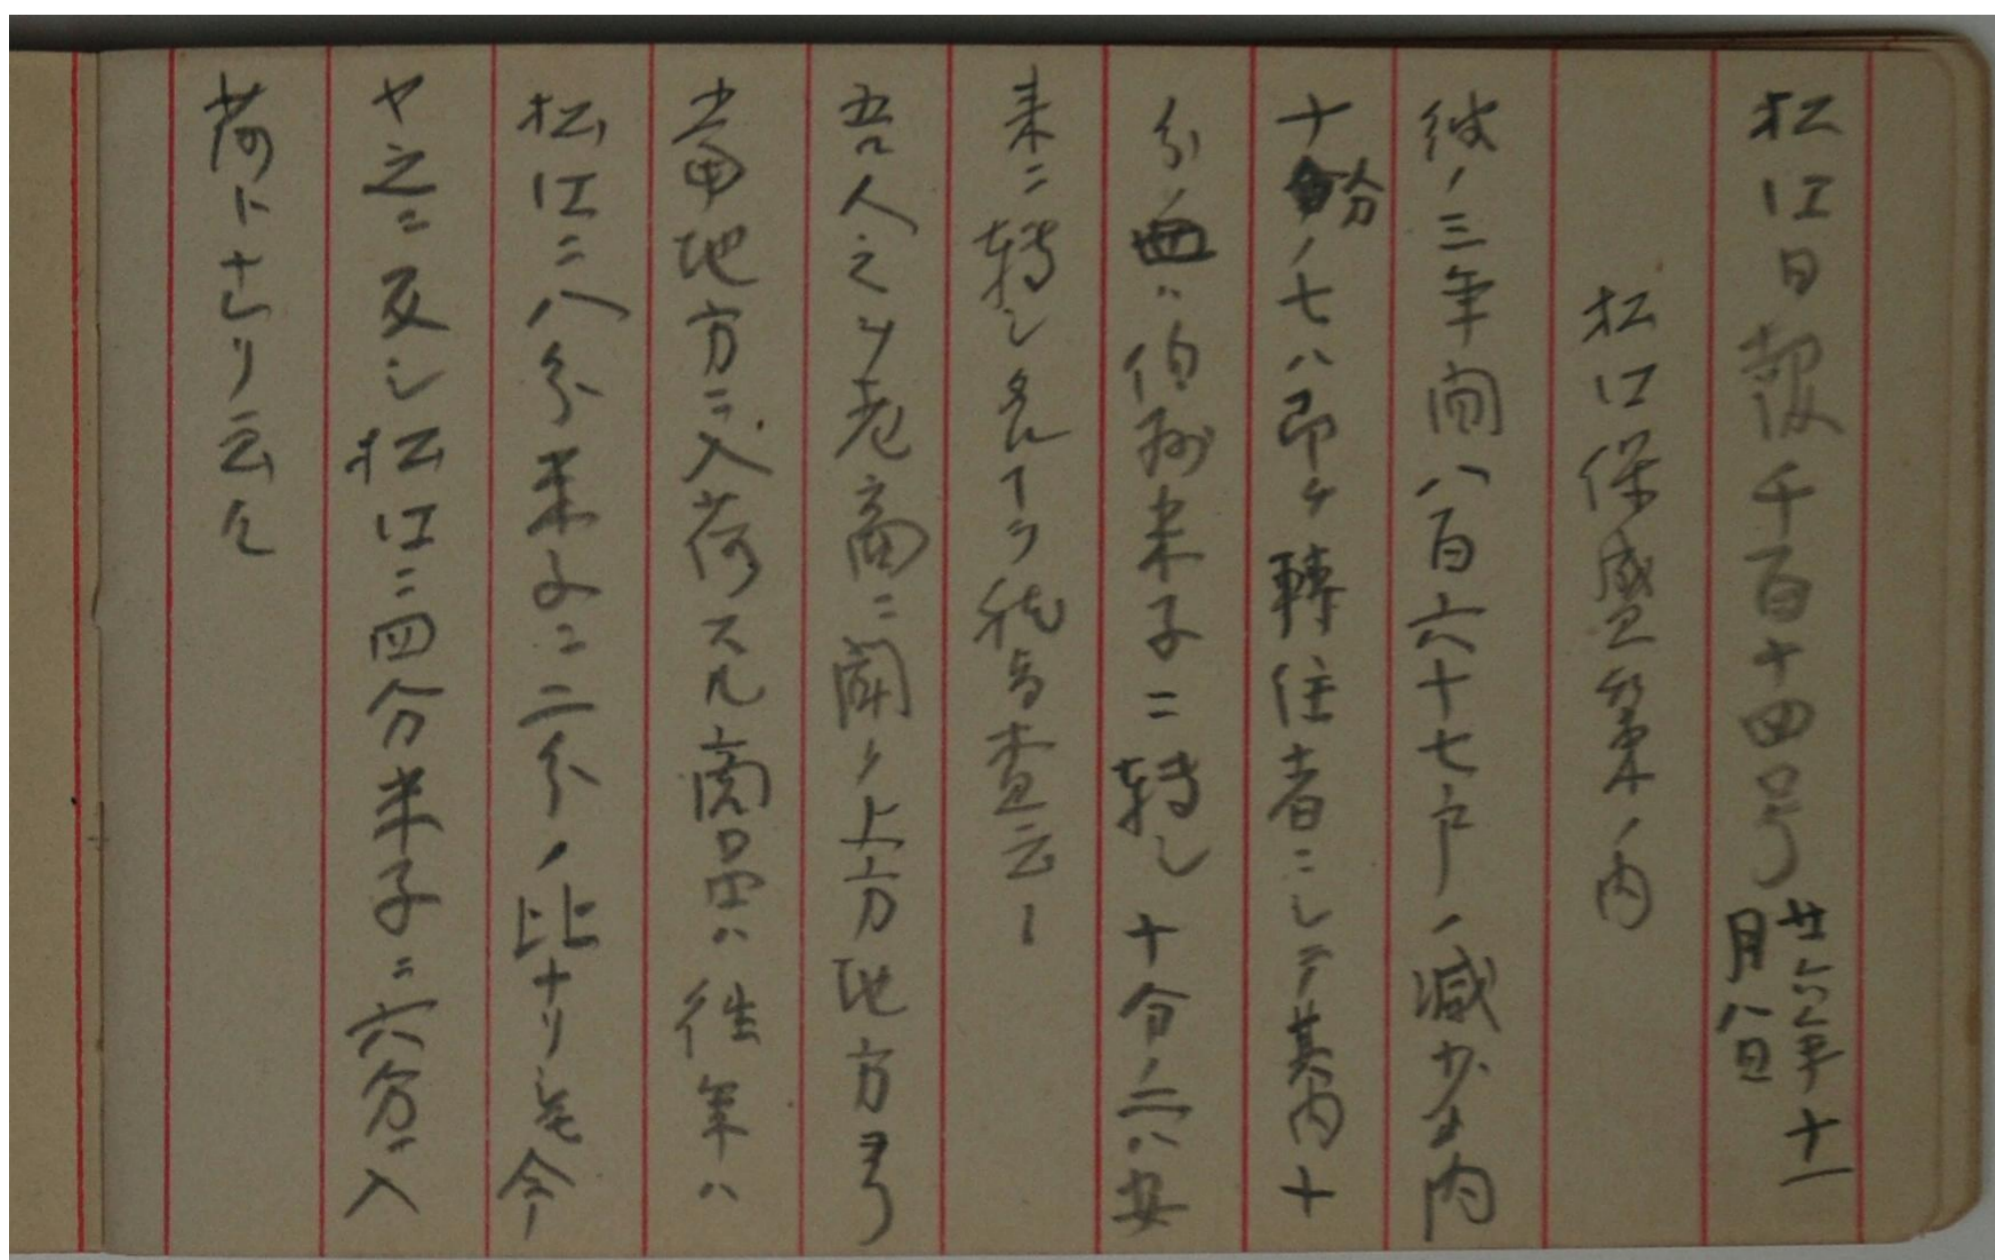 松江日報千百十四号 廿六年十一月八日
松江保盛策ノ内
彼ノ三年間八百六十七戸ノ減少ノ内
十分ノ七八即ケ轉住者ニシテ其内十
分ノ ハ伯州米子ニ轉シ十分ノ二ハ安
来ニ轉シ 云々
吾人之ヲ老商ニ聞ク上方地方ヨリ
當地方ニ入荷スル商品ハ往年ハ
松江ニ八分米子ニ二分ノ比ナリシモ今
ヤ之ニ反シ松江ニ四分米子ニ六分ニ入
荷トナレリ云々